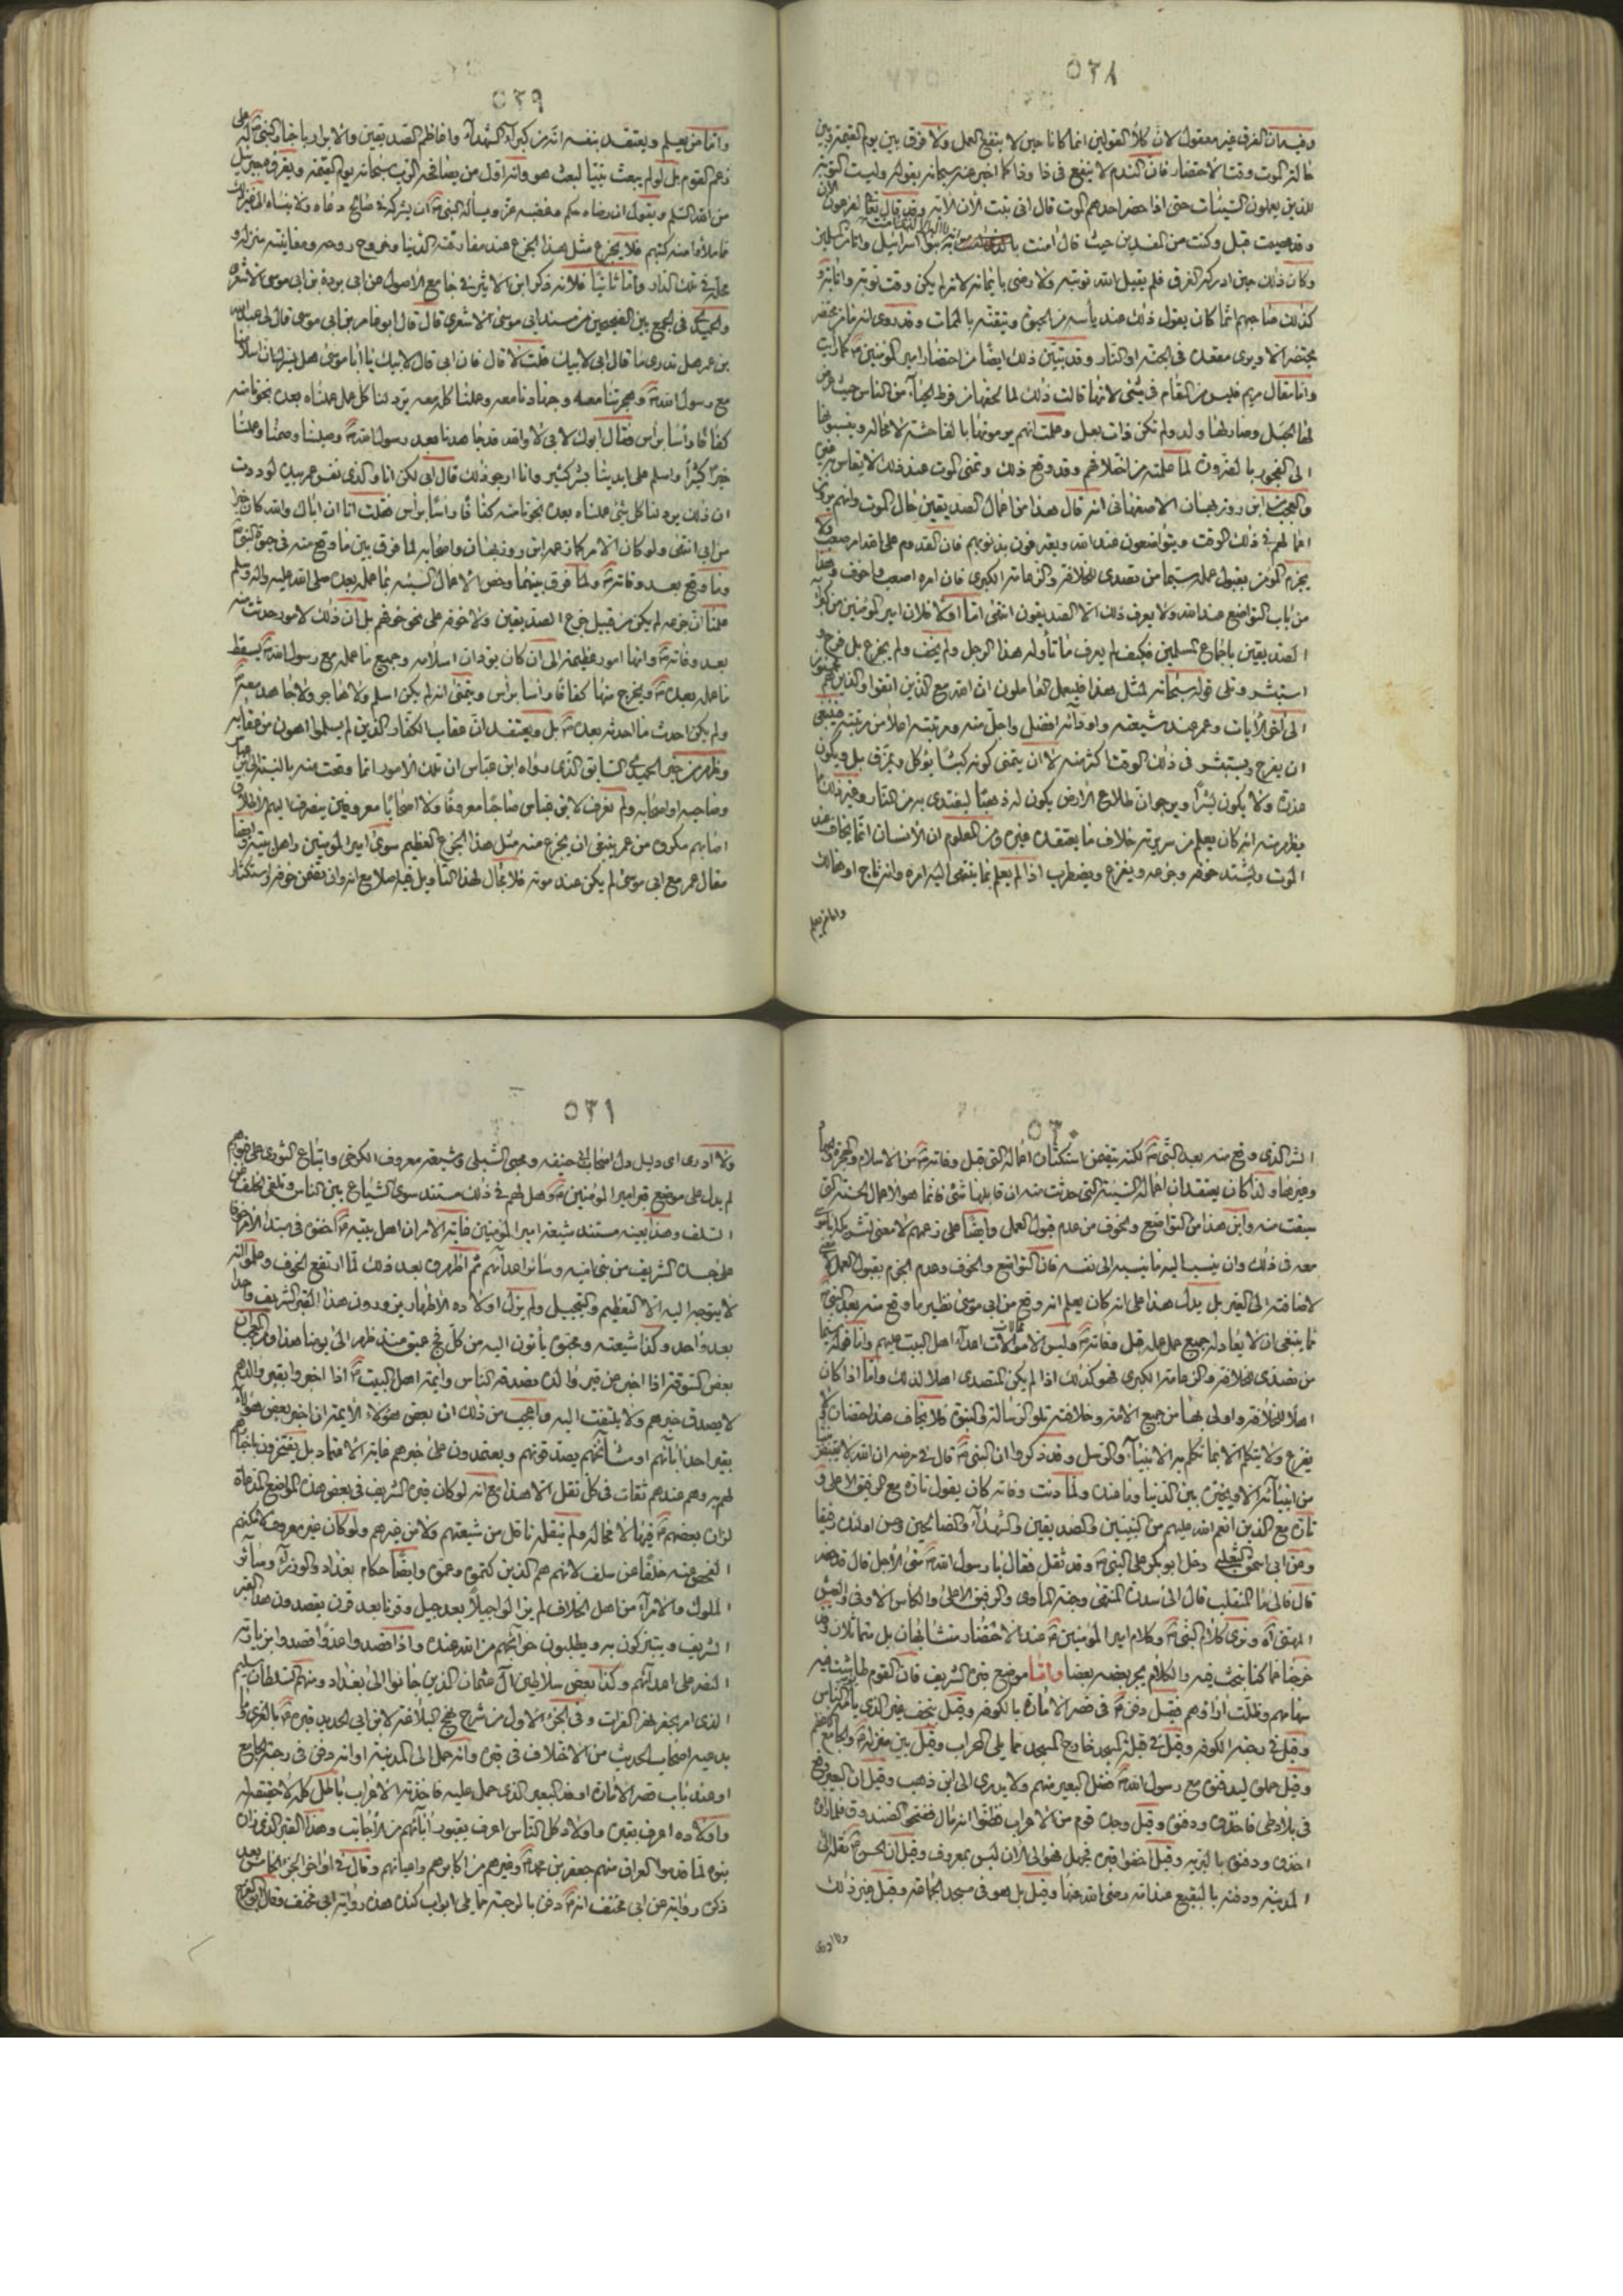 ٥٢٨
وفيه ان الفرق غير معقول لان كلا القولين انما كانا حين لا ينفع العمل ولا فرق بين يوم القيمة وبين
حالة الموت وقت الاحتضار فان الندم لا ينفع في ذا وذا كما اخبر عنه سبحانه بقوله وليست التوبة
للذين يعملون السيئات حتى اذا حضر احدهم الموت قال اني تبت الآن الآية وقد قال تعالى لفرعون الآن
وقد عصيت قبل وكنت من المفسدين حيث قال امنت بنو اسرائيل وانا من المسلمين
وكان ذلك حين ادركه الغرق فلم يقبل الله توبته ولا رضي بايمانه لانه لم يكن وقت توبة وانابة
كذلك صاحبهم انما كان يقول ذلك عند يأسه من الحيوة وتيقنه بالممات وقد روى انه ما من محتضر
يحتضر الا ويرى مقعده في الجنة او النار وقد تبين ذلك ايضا من احتضار امير المؤمنين
واما مقال مريم فليس من المقام في شئ لانها قالت ذلك لما لحقها من فرط الحياء من الناس حيث عرض
لها الحبل وصار لها ولد ولم تكن ذات بعل وعلمت انهم يرمونها بالفاحشة لا محالة وينسبونها
الى الفجور لما علمته من اخلاقهم وقد وقع ذلك وتمنى الموت عند ذلك لا يقاس
والعجب من ابن روزبهان الاصفهاني انه قال هذا من اعمال الصديقين حال الموت وانهم يرون
اعمالهم في ذلك الوقت ويتواضعون عند الله ويعترفون بذنوبهم فان القدوم على الله امر صعب ولا
يجزم المؤمن بقبول عمله سيما من تصدى للخلافة والزعامة الكبرى فان امره اصعب واخوف وهذا
من باب التواضع عند الله ولا يعرف ذلك الا الصديقون انتهى اما اولا فلان امير المؤمنين من اكبر
الصديقين باجماع المسلمين فكيف لم يعرف ما تأوله هذا الرجل ولم يخف ولم يجزع بل فرح
استبشر وتلى قوله سبحانه لمثل هذا فليعمل العاملون ان الله مع الذين اتقوا والذين هم محسنون
الى آخر الآيات وعمر عند شيعته واوليائه افضل واجل منه ومرتبته اعلا من مرتبته فينبغي
ان يفرح ويستبشر في ذلك الوقت اكثر منه لا ان يتمنى كونه كبشا يؤكل ويمزق بل ويكون
عذرة ولا يكون بشرا ويرجو ان طلاع الارض يكون له ذهبا ليفتدي به من النار وغير ذلك مما
يظهر منه انه كان يعلم من سريرته خلاف ما يعتقده غيره ومن المعلوم ان الانسان انما يخاف عند
الموت ويشتد خوفه وجزعه ويفزع ويضطرب اذا لم يعلم بما ينتهي اليه امره وانه ناج او هالك
واما من يعلم
٥٢٩
واما من يعلم ويعتقد بنفسه انه من كبراء الشهداء واعاظم الصديقين والابرار باخبار النبي له على
زعم القوم بل لو لم يبعث نبيا لبعث هو وانه اول من يصافحه الرب سبحانه يوم القيمة ويقرئه جبرئيل
من الله السلم ويقول ان رضاه حكم وغضبه عز ويسأله النبي ان يشركه في صالح دعاه ولا ينساه الى غير ذلك
مما ملأوا منه كتبهم فلا يجزع مثل هذا الجزع عند مفارقته الدنيا وخروج روحه ومعاينته منزله و
محله في تلك الدار واما ثانيا فلانه ذكر ابن الاثير في جامع الاصول عن ابي بردة بن ابي موسى الاشعري
والحميدي في الجمع بين الصحيحين من مسند ابي موسى الاشعري قال قال ابو عامر بن ابي موسى قال لي عبد الله
بن عمر هل تدري ما قال ابي لابيك قلت لا قال فان ابي قال لابيك يا ابا موسى هل يسرك ان اسلامنا
مع رسول الله وهجرتنا معه وجهادنا معه وعملنا كله معه يرد لنا كل عمل عملناه بعده نجونا منه
كفافا رأسا برأس فقال ابوك لابي لا والله قد جاهدنا بعد رسول الله وصلينا وصمنا وعملنا
خيرا كثيرا واسلم على ايدينا بشر كثير وانا ارجو ذلك قال ابي لكن انا والذي نفس عمر بيده لوددت
ان ذلك يرد لنا كل شئ عملناه بعده نجونا منه كفافا رأسا برأس فقلت انا ان اباك والله كان خيرا
من ابي انتهى ولو كان الامر كما زعمه ابن روزبهان واصحابه لما فرق بين ما وقع منه في حيوة النبي
وما وقع بعد وفاته ولما فرق بينهما وخص الاعمال السيئة بما عمله بعده صلى الله عليه وآله وسلم
علمنا ان جزعه لم يكن من قبيل جزع الصديقين ولا خوفه على نحو خوفهم بل ان ذلك لامور حدثت منه
بعد وفاته وانها امور عظيمة الى ان كان يود ان اسلامه وجميع ما عمله مع رسول الله يسقط
ما عمله بعده ويخرج منها كفافا رأسا برأس ويتمنى انه لم يكن اسلم ولا هاجر ولا جاهد معه
ولم يكن احدث ما احدثه بعده بل ويعتقد ان عقاب الكفار الذين لم يسلموا اهون من عقابه
وظهر من خبر الحميدي السابق الذي رواه ابن عباس ان تلك الامور انما وقعت منه بالنسبة الى ابن عباس
وصاحبه او اصحابه ولم نعرف لابن عباس صاحبا معروفا ولا اصحابا معروفين ينصرف اليهم الاطلاق
اصابهم مكروه من عمر ينبغي ان يجزع منه مثل هذا الجزع العظيم سوى امير المؤمنين واهل بيته وايضا
مقال عمر مع ابي موسى لم يكن عند موته فلا مجال لهذا التأويل فيه اصلا مع انه وان يتضمن خوفه واستكثار
٥٣٠
الشر الذي وقع منه بعد النبي لكنه يتضمن استكثار اعماله التي قبل وفاته من الاسلام والهجرة والجهاد
وغيرها ولذا كان يعتقد ان اعماله السيئة التي حدثت منه ان قابلها شئ فانما هو الاعمال الحسنة التي
سبقت منه واين هذا من التواضع والخوف من عدم قبول العمل وايضا على زعمهم لا معنى لتشريكه ابا موسى
معه في ذلك وان ينسب اليه ما نسبه الى نفسه فان التواضع والخوف وعدم الجزم بقبول العمل لا معنى
لاضافته الى الغير بل يدل هذا على انه كان يعلم انه وقع من ابي موسى نظير ما وقع منه بعد النبي
مما ينبغي ان لا يعادله جميع عمل عمله قبل وفاته وليس الا موالات اعداء اهل البيت عليهم واما قوله سيما
من تصدى للخلافة والزعامة الكبرى فهو كذلك اذا لم يكن المتصدي اهلا لذلك واما اذا كان
اهلا للخلافة واولى بها من جميع الامة وخلافته تلو الرسالة والنبوة فلا يخاف عند احتضاره ولا
يفزع ولا يتكلم الا بما تكلم به الانبياء والرسل وقد ذكروا ان النبي قال في مرضه ان الله لا يقبض
من انبيائه الا ويخيره بين الدنيا وما عنده ولما دنت وفاته كان يقول تارة مع الرفيق الاعلى و
تارة مع الذين انعم الله عليهم من النبيين والصديقين والشهداء والصالحين وحسن اولئك رفيقا
وعن ابي اسحق الثعلبي دخل ابو بكر على النبي وقد ثقل فقال يا رسول الله متى الاجل قال قد حضر
قال فالى ما المنقلب قال الى سدرة المنتهى وجنة المأوى والرفيق الاعلى والكأس الاوفى والعيش
المهنى اه وترى كلام النبي وكلام امير المؤمنين عند الاحتضار متشابهان بل متماثلان وقد
خرجنا عما كنا نبحث فيه والكلام يجر بعضه بعضا واما موضع قبره الشريف فان القوم طاشت فيه
سهامهم وظلت آراؤهم فقيل دفن في قصر الامارة بالكوفة وقيل بنجف قبره الذي يأتيه الناس
وقيل في رحبة الكوفة وقيل في قبلة المسجد خارج المسجد مما يلي المحراب وقيل بين منزله والجامع الاعظم
وقيل حملوه ليدفنوه مع رسول الله فضل البعير منهم ولا يدرى الى اين ذهب وقيل ان البعير وقع
في بلاد طي فاخذوه ودفنوه وقيل وجده قوم من الاعراب فظنوا انه مال ففتحوا الصندوق فلما رأوه
اخذوه ودفنوه بالبرية وقيل اخفوا قبره فجهل فهو الى الآن ليس بمعروف وقيل ان الحسن نقله الى
المدينة ودفنه بالبقيع عند امه رضي الله عنها وقيل بل هو في مسجد الجماعة وقيل غير ذلك
ولا ادري
٥٣١
ولا ادري اي دليل دل اصحاب ابي حنيفة ومحبي الشبلي وشيعة معروف الكرخي واتباع الثوري على قبورهم
لم يدل على موضع قبر امير المؤمنين وهل لهم في ذلك مستند سوى الشياع بين الناس وتلقى الخلف عن
السلف وهذا بعينه مستند شيعة امير المؤمنين فانه الامر ان اهل بيته اخفوه في مبتدء الامر خوفا
على جسده الشريف من بني امية وسائر اعدائهم ثم اظهروه بعد ذلك لما ارتفع الخوف وعلموا انه
لا يتوجه اليه الا التعظيم والتبجيل ولم يزل اولاده الاطهار يزورون هذا القبر الشريف واحدا
بعد واحد وكذا شيعته ومحبوه يأتون اليه من كل فج عميق منذ ظهر الى يومنا هذا ومن العجب ان
بعض السوقة اذا اخبر عن قبر والده يصدقه الناس وائمة اهل البيت اذا اخبروا بقبر والدهم
لا يصدق خبرهم ولا يلتفت اليه واعجب من ذلك ان بعض هؤلاء الائمة ان اخبر بعض هؤلاء
بقبر احد آبائهم او مشائخهم يصدقونهم ويعتمدون على خبرهم غاية الاعتماد بل يفتخرون باخبارهم
لهم وهم عندهم ثقات في كل نقل الا هذا مع انه لو كان قبره الشريف في بعض هذه المواضع المدعاة
لزاره بعضهم فيها لا محالة ولم ينقله ناقل من شيعتهم ولا من غيرهم ولو كان غير معروف لامكنهم
الفحص عنه خلفا عن سلف لانهم هم الذين كتموه وعموه وايضا حكام بغداد والوزراء وسائر
الملوك والامراء من اهل الخلاف لم يزالوا جيلا بعد جيل وقرنا بعد قرن يقصدون هذا القبر
الشريف ويتبركون به ويطلبون حوائجهم من الله عنده واذا قصدوا عدوا قصدوا بزيارته
النصر على اعدائهم وكذا بعض سلاطين آل عثمان الذين جاؤوا الى بغداد ومنهم السلطان سليم
الذي امر بحفر نهر الفرات وفي الجزء الاول من شرح نهج البلاغة لابن ابي الحديد قبره بالغري وما
يدعيه اصحاب الحديث من الاختلاف في قبره وانه حمل الى المدينة او انه دفن في رحبة الجامع
او عند باب قصر الامارة او ند البعير الذي حمل عليه فاخذته الاعراب باطل كله لا حقيقة له
واولاده اعرف بقبره واولاد كل الناس اعرف بقبور آبائهم من الاجانب وهذا القبر الذي زاره
بنوه لما قدموا العراق منهم جعفر بن محمد وغيره من اكابرهم واعيانهم وقال في اواخر الجزء الخامس بعد
ذكر رواية عن ابي مخنف انه دفن بالرحبة مما يلي ابواب كندة هذه رواية ابي مخنف وقال ابو الفرج